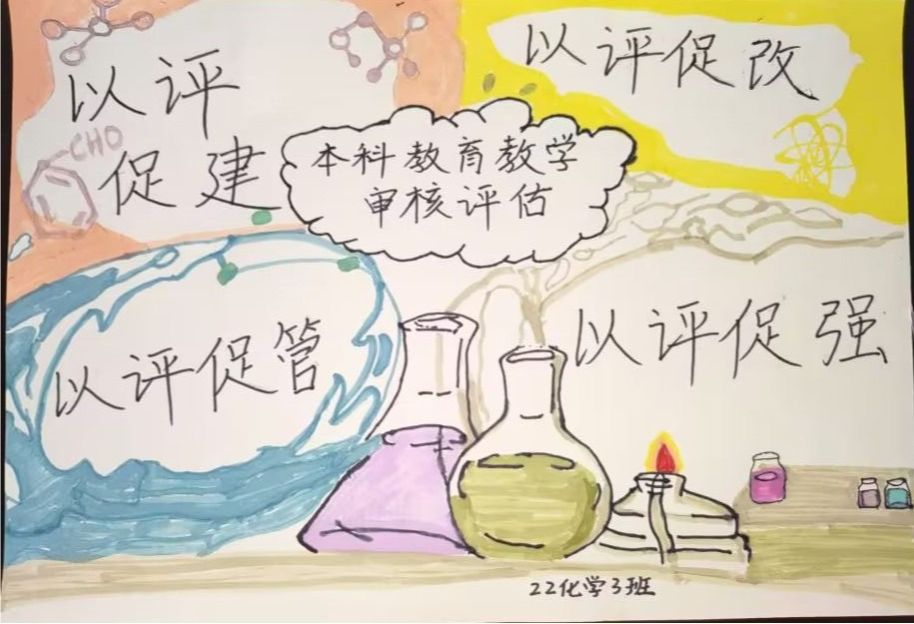 以评
促建
CHO
以评促改
本科教育教学
审核评估
以评促管
以评促强
22化学3班